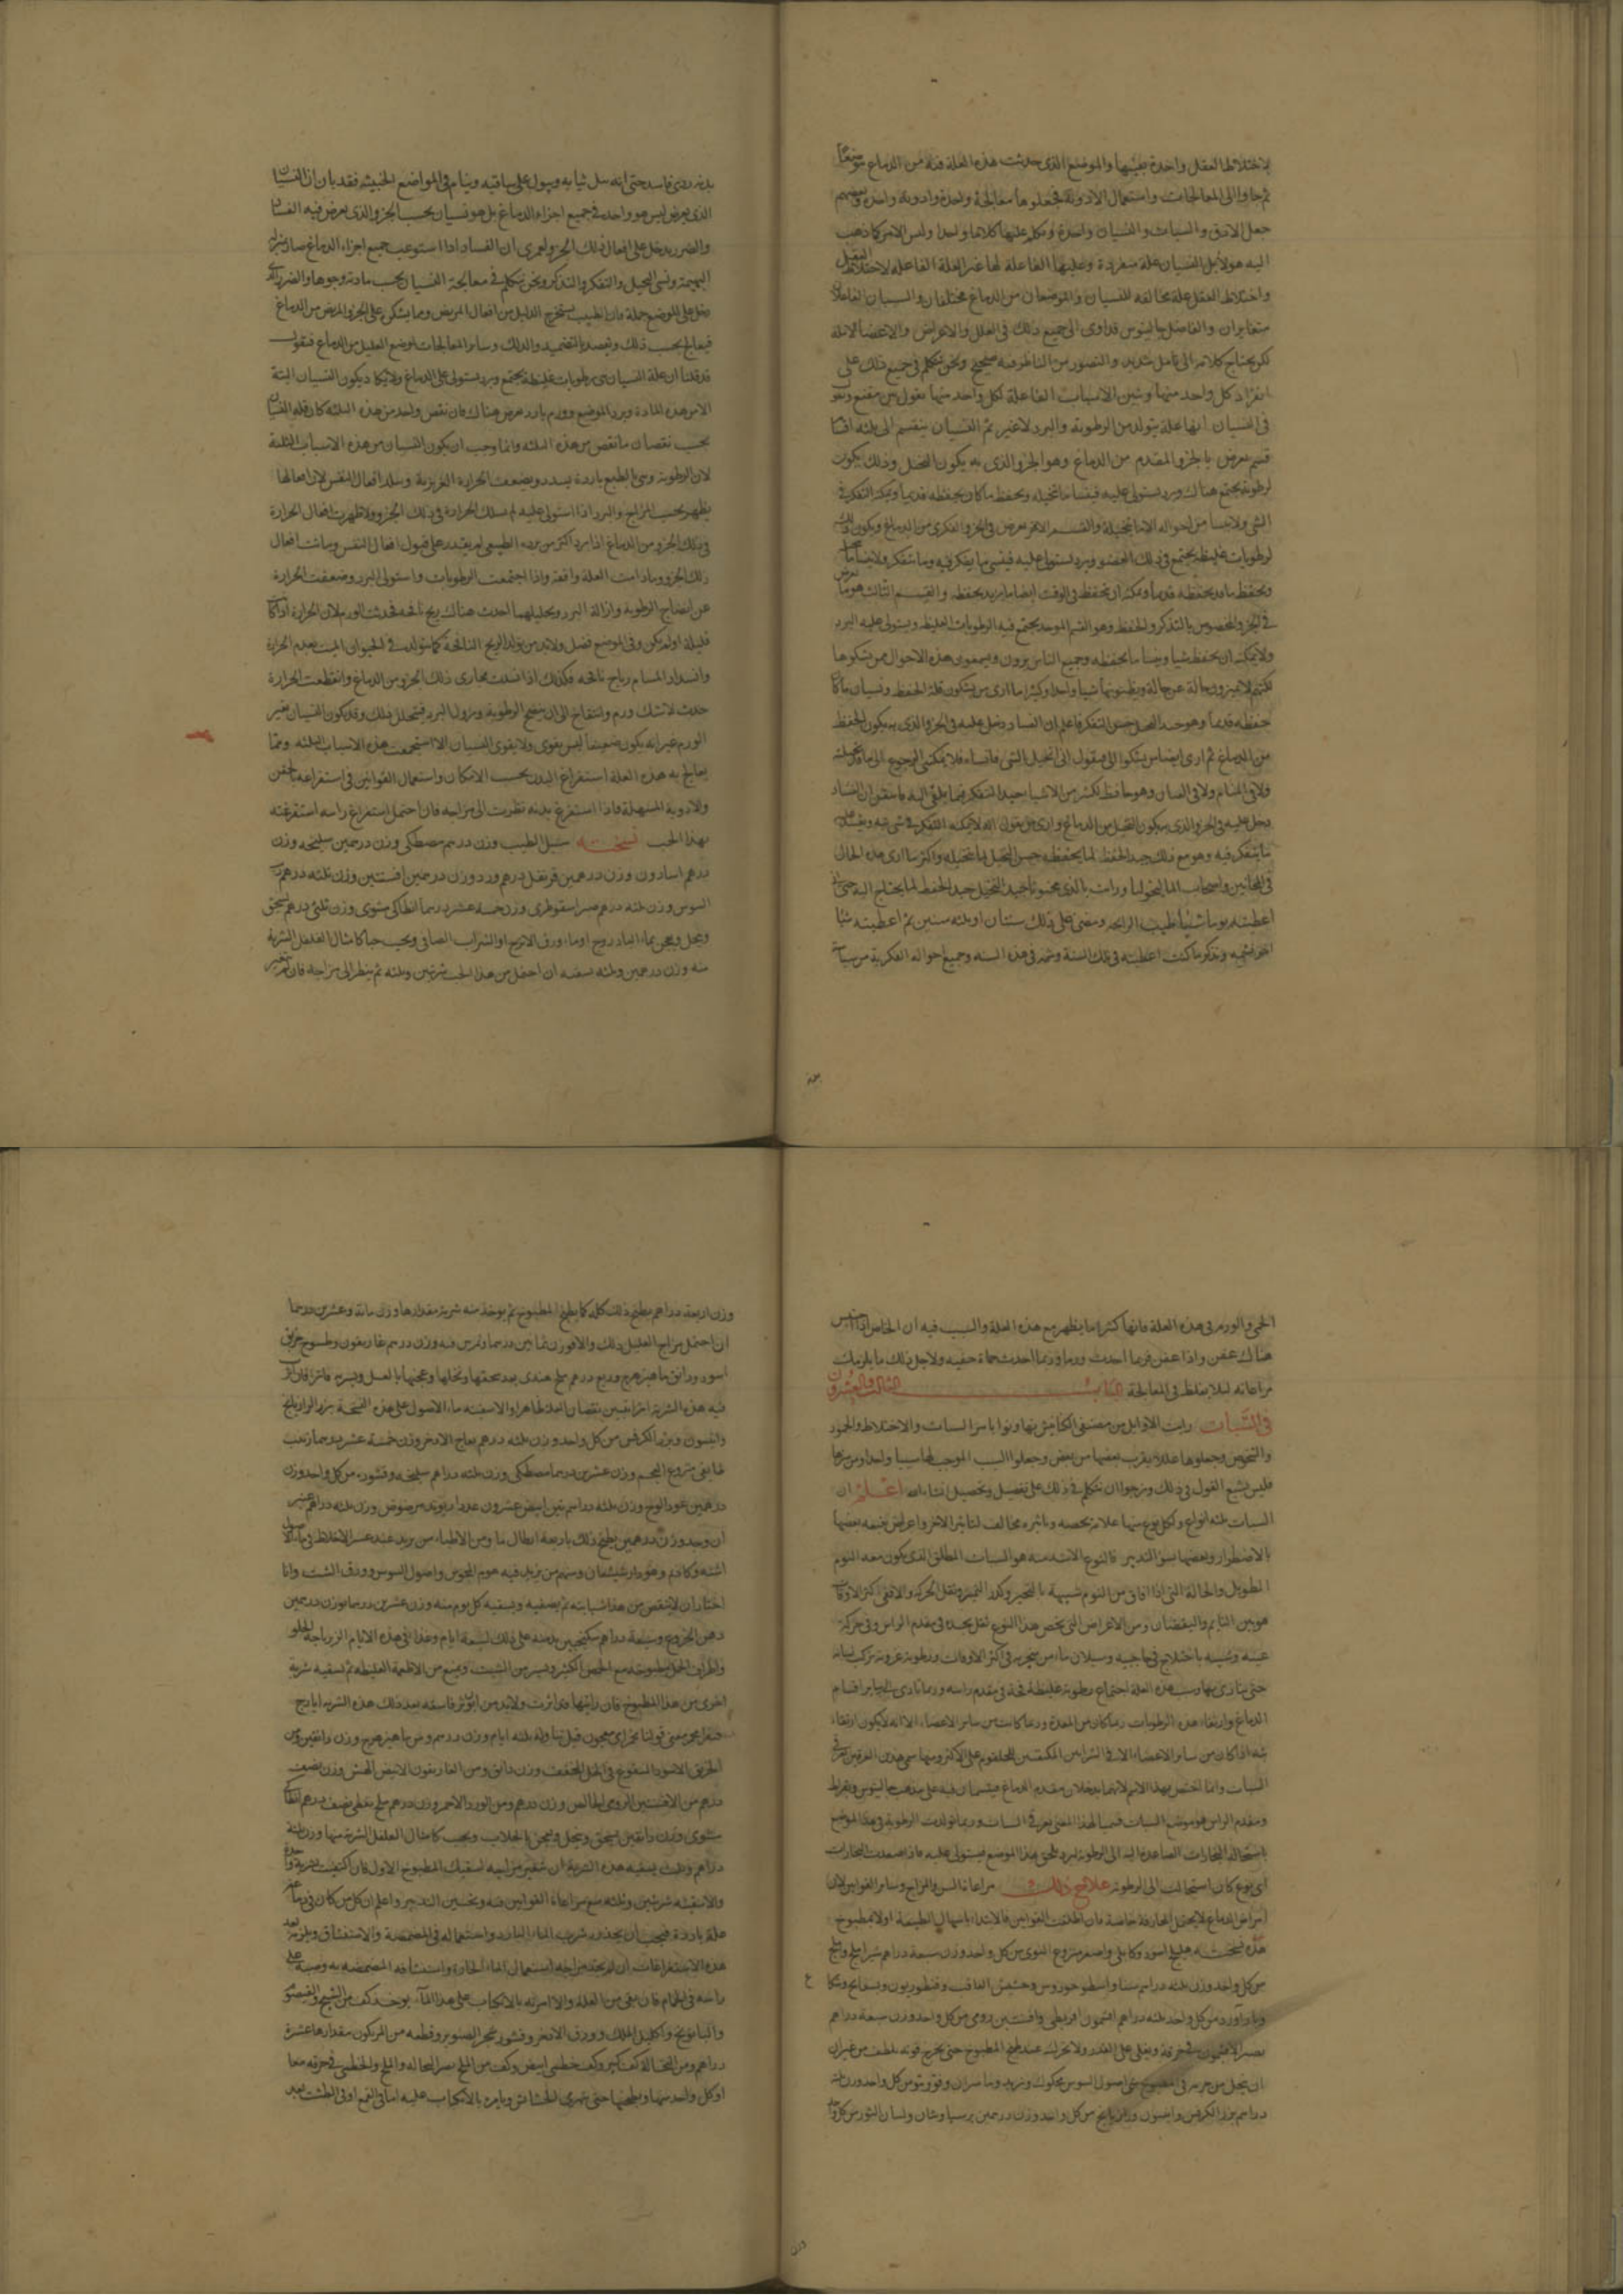 لاختلاط العقل واحدة بعينها والموضع الذى حدثت هذه العلة فيه من الدماغ موضعاً
ثم جاوا الى المعالجات واستعمال الادوية فجعلوها معالجة واحدة وادوية واحدة وبعضهم
جعل الارق والسبات والنسيان واحدة وتكلم عليها كلاما واحدا وليس الامر كما ذهب
اليه هولا بل النسيان علة منفردة وعلتها الفاعلة لها غير العلة الفاعلة لاختلاط العقل
واختلاط العقل علة مخالفة للنسيان والموضعان من الدماغ مختلفان والسببان الفاعلان
متغايران والفاضل جالينوس قد اوى الى جميع ذلك فى العلل والاعراض والاعضا الالمة
لكن يحتاج كلامه الى تامل شديد والتصور من الناظر فيه صحيح ونحن نتكلم فى جميع ذلك على
انفراد كل واحد منها ونبين الاسباب الفاعلة لكل واحد منها بقول بين مقنع ونقول
فى النسيان انها علة يتولد من الرطوبة والبرد لا غير ثم النسيان ينقسم الى ثلثه اقسام
قسم يعرض بالجزو المقدم من الدماغ وهو الجزو الذى به يكون التخيل وذلك يكون
لرطوبة يجتمع هناك وبرد يستولى عليه فينسا ما تخيله ويحفظ ما كان يحفظه قديما ويمكنه التفكر فى
الشى ولا ينسا من احواله الا ما تخيله والقسم الاخر يعرض فى الجزو الفكرى من الدماغ ويكون ذلك
لرطوبات غليظة يجتمع فى ذلك العضو وبرد يستولى عليه فينسى ما يفكر فيه وما يتفكر ولا ينسا ما تخيل
ويحفظ ما قد يحفظه قديما ويمكنه ان يحفظ فى الوقت ايضا ما يريد يحفظه والقسم الثالث هو ما يعرض
فى الجزو المخصوص بالتذكر والحفظ وهو القسم الموخر يجتمع فيه الرطوبات الغليظة ويستولى عليه البرد
ولا يمكنه ان يحفظ شيا وينسا ما يحفظه وجميع الناس يرون ويسمعون هذه الاحوال ممن يشكوها
لكنهم لا يميزون حالة عن حالة ويظنونها شيا واحدا وكثيرا ما ارى من يشكون قلة الحفظ ونسيان ما كان
حفظه قديما وهو جيد التخيل حسن التفكر فاعلم ان الفساد دخل عليه فى الجزو الذى به يكون الحفظ
من الدماغ ثم ارى ايضا من يشكوا الى فيقول انى اتخيل الشى فانساه فلا يمكننى الرجوع الى ما قد تخيلته
ولا فى المنام ولا فى العيان وهو حافظ لكثير من الاشيا جيد التفكر فيما يلقى اليه فاتيقن ان الفساد
دخل عليه فى الجزو الذى به يكون التخيل من الدماغ وارى من يقول انه لا يمكنه التفكر فى شى
ما يتفكر فيه وهو مع ذلك جيد الحفظ لما يحفظه حسن التخيل لما يتخيله واكثر ما ارى هذه الحال
فى المجانين واصحاب الماليخوليا ورايت بالذى مجنونا جيد التخيل جيد الحفظ لما يحتاج اليه حتى انى
اعطيته يوما شيأ طيب الرايحه ومضى على ذلك سنتان او ثلثه سنين ثم اعطيته شيا
اخر فشمه وتذكر ما كنت اعطيته فى تلك السنة وشمه فى هذه السنه وجميع احواله الفكرية من سياسة
بدنه
بدنه ردى فاسد حتى انه يبل ثيابه ويبول على ساقيه وينام فى المواضع الخبيثه فقد بان ان النسيان
الذى يعرض ليس هو واحد فى جميع اجزاء الدماغ بل هو نسيان بحسب الجزو الذى يعرض فيه الفساد
والضرر يدخل على افعال ذلك الجزو ولعمرى ان الفساد اذا استوعب جميع اجزاء الدماغ صار بمنزلة
البهيمة ونسى التخيل والتفكر والتذكر ونحن نتكلم فى معالجة النسيان بحسب مادته وجوهها والضرر الذى
دخل على الموضع جملة فان الطبيب يستخرج الدليل من افعال المريض ومما يشتكى على الجزو المريض من الدماغ
فيعالج بحسب ذلك ويقصد بالتضميد والدلك وساير المعالجات لموضع العليل من الدماغ فنقول
قد قلنا ان علة النسيان هى رطوبات غليظة يجتمع وبرد يستولى على الدماغ ولا يكاد يكون النسيان البتة
الا من هذه المادة وبرد الموضع وورم بارد يعرض هناك فان نقص واحد من هذه الثلثه كان قله النسيان
بحسب نقصان ما نقص من هذه الثلثه وانما وجب ان يكون النسيان من هذه الاسباب الثلثة
لان الرطوبة وهى بالطبع باردة يسدد ويضعف الحرارة الغريزية وتبلد افعال النفس لان افعالها
يظهر بحسب المزاج والبرد اذا استولى عليه لم يسلك الحرارة فى ذلك الجزو ولا ظهرت افعال الحرارة
فى ذلك الجزو من الدماغ اذا برد اكثر من برده الطبيعى لم يقدر على قبول افعال النفس وماتت افعال
ذلك الجزو ما دامت العلة واقفة واذا اجتمعت الرطوبات واستولى البرد وضعفت الحرارة
عن انضاج الرطوبة وازالة البرد وتحليلهما احدث هناك ريح نافخه فحدث الورم لان الحرارة اذا كانت
قليلة اولم يكن وفى الموضع فضل ولا بد من تولد الريح النافخة كما يتولد فى الحيوان الميت بعدم الحرارة
وانسداد المسام رياح نافخه فكذلك اذا انسدت مجارى ذلك الجزو من الدماغ وانقطعت الحرارة
حدث لا شك ورم وانتفاخ الى ان ينضج الرطوبة ويزول البرد فيتحلل ذلك وقد يكون النسيان بغير
الورم غير انه يكون ضعيفا ليس يقوى ولا يقوى النسيان الا اذا استجمعت هذه الاسباب الثلثه ومما
يعالج به هذه العلة استفراغ البدن بحسب الامكان واستعمال القوانين فى استفراغه بالحقن
والادوية المسهلة فاذا استفرغ بدنه نظرت الى مزاجه فان احتمل استفراغ راسه استفرغته
بهذا الحب نسخته سنبل الطيب وزن درهم مصطكى وزن درهمين سليخه وزن
درهم اسارون وزن درهمين قرنفل درهم ورد وزن درهمين افسنتين وزن ثلثه درهم رب
السوس وزن ثلثه درهم صبر اسقوطرى وزن خمسة عشر درهما انطاكى مشوى وزن ثلثى درهم يسحق
وينخل ويعجن بماء الباذروج او ماء ورق الاترج او الشراب الصافى ويحبب حبا كامثال الفلفل الشربة
منه وزن درهمين وثلثه يسقيه ان احتمل من هذا الحب شربتين وثلثه ثم ينظر الى مزاجه فان تغير
الحمى والورم فى هذه العلة فانها كثيرا ما يظهر مع هذه العلة والسبب فيه ان الخلط اذا احتبس
هناك عفن واذا عفن فربما احدث ورما وربما احدث حماة خفيه ولاجل ذلك ما يلزمك
مراعاته ليلا يغلظ فى المعالجة الباب الثالث والعشرون
فى السبات رايت الاوايل من مصنفى الكنانيش تهاونوا بامر السبات والاختلاط والجمود
والشخوص وجعلوها عللا يقرب بعضها من بعض وجعلوا السبب الموجب لها سببا واحدا ومن مرضها
فليس يشبع القول فى ذلك ونرجوا ان نتكلم فى ذلك على تفصيل وتحصيل ان شاء الله اعلم ان
السبات ثلثه انواع ولكل نوع منها علامة يخصه وتاثيره مخالف لتاثير الاخر واعراض يتبعه بعضها
بالاضطرار وبعضها بسوء التدبير فالنوع الاشد منه هو السبات المطلق الذى يكون معه النوم
الطويل والحالة التى اذا افاق من النوم شبيهة بالتحير وكدر التميز وثقل الحركه والافعى اكثر الاوقات
هو بين النايم واليقضان ومن الاعراض التى يخص هذا النوع ثقل يجده فى مقدم الراس وفى حركة
عينيه وشبيه باختلاج فى حاجبيه وسيلان ماء من منخريه فى اكثر الاوقات ورطوبة غروية تركب لسانه
حتى يتاذى بها وسبب هذه العلة اجتماع رطوبة غليظة فجة فى مقدم راسه وربما تادى الى ساير اقسام
الدماغ وارتقاء هذه الرطوبات ربما كان من المعدة وربما كانت من ساير الاعضاء الا انه لا يكون ارتقاء
شه اذا كان من ساير الاعضاء الا فى الشرايين المكتنفين للحلقوم على الاكثر ومنها سمى هذين العرقين عرقى
السبات وانما اختص بهذا الاسم لانهما يدخلان مقدم الدماغ فينسمان فيه على مذهب جالينوس وبقراط
ومقدم الراس هو موضع السبات فسميا لهذا المعنى عرقى السبات وربما تولدت الرطوبة فى هذا الموضع
باستحالة البخارات الصاعدة اليه الى الرطوبة لبرد يلحق هذا الموضع فيستولى عليه فاذا صعدت البخارات
اى نوع كان استحالت الى الرطوبة علاج ذلك مراعاة السن والمزاج وساير القوانين لان
امراض الدماغ لا يحتمل المجازفة خاصة فان اطلقت القوانين فالابتداء باسهال الطبيعة اولا بمطبوخ
هذه نسخته هليلج اسود وكابلى واصفر منزوع النوى من كل واحد وزن سبعة دراهم شيراملج واملج
من كل واحد وزن ثلثه دراهم سنا واسطوخودوس وحشيش الغافت وقنطوريون وبسفايج وشكاعا
وباداورد من كل واحد ثلثه دراهم افتيمون اقريطى وافسنتين رومى من كل واحد وزن سبعة دراهم
يصير الافتيمون فى خرقة ويعلى على القدر ولا يحرك عند طبخ المطبوخ حتى يخرج قوته بلطف من غير ان
ان ينحل من جرمه فى المطبوخ شى اصول السوس محكوك وتربد وماميران وفوذنج من كل واحد وزن ثلثه
دراهم بزر الكرفس وانيسون ورازيانج من كل واحد وزن درهمين برسياوشان ولسان الثور من كل واحد
وزن
وزن اربعة دراهم يطبخ ذلك كله كما يطبخ المطبوخ ثم يوخذ منه شربة مقدارها وزن مائة وعشرين درهما
ان احتمل مزاج العليل ذلك والا فوزن ثمانين درهما ويمرس فيه وزن درهم غاريقون وطسوج خربق
اسود ودانق ماهيزهرج وربع درهم ملح هندى بعد سحقها ونخلها وعجنها بالعسل ويشربه فاثر افان اثر
فيه هذه الشربة اثرا تبين نقصان العلة ظاهرا والا سقيته ماء الاصول على هذه النسخة بزر الرازيانج
وانيسون وبزر الكرفس من كل واحد وزن ثلثه درهم فقاح الاذخر وزن خمسة عشر درهما زبيب
طايفى منزوع العجم وزن عشرين درهما مصطكى وزن ثلثه دراهم سليخه وقشوره من كل واحد وزن
درهمين عود الوج وزن ثلثه دراهم تين ابيض عشرون عددا ريوند مرضوض وزن ثلثه دراهم عنبر
ان وجد وزن درهمين يطبخ ذلك باربعة ارطال ماء ومن الاطباء من يزيد عند عسر الاخلاط فى ماء الاصول
اشنه وكاذم وهو دارشيشعان ومنهم من يزيد فيه هوم المجوس واصول السوس وورق الشبت وانا
اختار ان لا ينقص من هذا شيا بتة ثم يصفيه ويسقيه كل يوم منه وزن عشرين درهما بوزن درهمين
دهن الخروع وسبعة دراهم سكنجبين يدمنه على ذلك تسعة ايام وغذاه فى هذه الايام الزرباجه الحلو
واطراف الحمل مطبوخة مع الحمص الكثير ويسير من الشبت ويمنع من الاطعمة الغليظة ثم يسقيه شربة
اخرى من هذا المطبوخ فان رايتها قد اثرت ولا بد من ان تؤثر فاسقه بعد ذلك هذه الشربه ايارج
فيقرا مخمر معنى قولنا مخمر اى معجون قبل تناوله ثلثه ايام وزن درهم ومن ماهيزهرج وزن دانقين ومن
الخربق الاسود المنقوع فى الخل المجفف وزن دانق ومن الغاريقون الابيض الهش وزن نصف
درهم من الافسنتين الرومى الخالص وزن درهم ومن الورد الاحمر وزن درهم ملح نفطى نصف درهم انطاكى
مشوى وزن دانقين يسحق وينخل ويعجن بالجلاب ويحبب كامثال الفلفل الشربة منها وزن ثلثه
دراهم وثلث يسقيه هذه الشربة ان تغير مزاجه لسقيك المطبوخ الاول فان اكتفيت بشربة واحدة
والا سقيته شربتين وثلثه مع مراعاة القوانين فيه وتحسين التدبير واعلم ان كل من كان فى دماغه
علة باردة فيجب ان يحذر شرب الماء البارد واستعماله فى المضمضة والاستنشاق ويلزمه بعد
هذه الاستفراغات ان لم يحتد مزاجه استعمال الماء الحار واستنشاقه المضمضه به وصبه على
راسه فى الحمام فان بقى من العلة والا امرته بالانكباب على هذا الماء يوخذ كف من الشيح والقيصوم
والبابونج واكليل الملك وورق الاذخر وقشور شجر الصنوبر وقطعه من المر يكون مقدارها عشرة
دراهم ومن النخالة كف كبير وكف خطمى ابيض وكف من الملح يصر النخاله والملح والخطمى فى خرقه معا
او كل واحد منها ويطبخها حتى يتهرى الحشائش ويامره بالانكباب عليه اما فى القمع او فى الطشت بعد